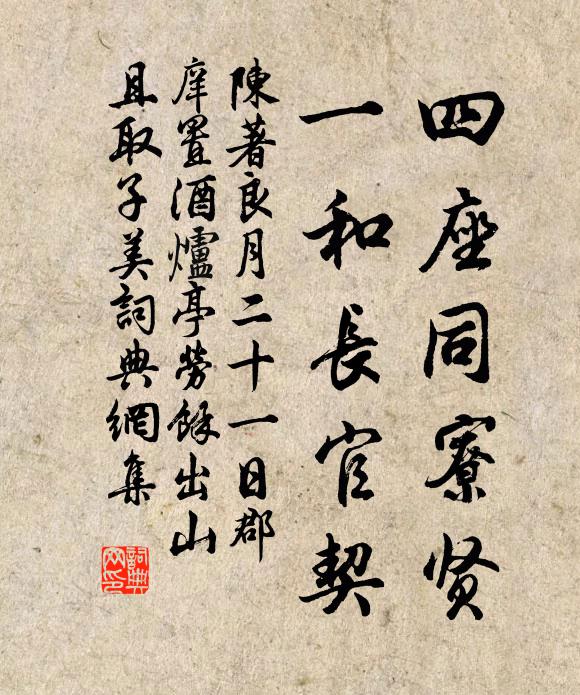 四座同寮贤
一和長官契
陳著良月二十一日郡
庠置酒爐亭勞餘出山
且取子美詞典網集
詞典网印